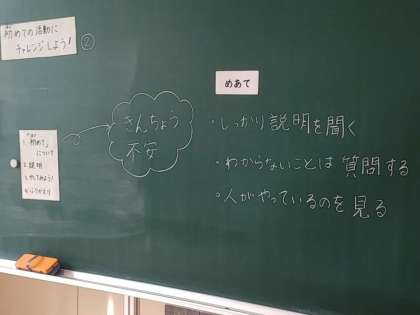 初めての活動に
チャレンジしよう!
②
1.「初めて」
について
2.説明
3.やってみよう!
4.ふりかえり
きんちょう
不安
めあて
・しっかり説明を聞く
・わからないことは質問する
・人がやっているのを見る